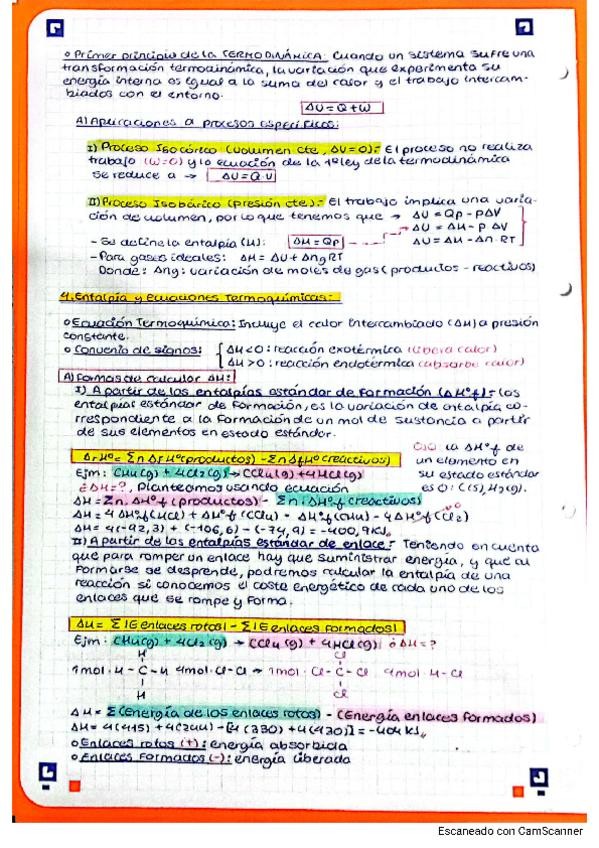 o Primer principio de la TERMODINÁMICA: Cuando un sistema sufre una
transformación termodinámica, la variación que experimenta su
energía interna es igual a la suma del calor y el trabajo intercam-
biados con el entorno.
ΔU = Q + W
A) Aplicaciones a procesos específicos:
I) Proceso Isocórico (volumen cte, ΔV=0):- El proceso no realiza
trabajo (W=0) y la ecuación de la 1ª ley de la termodinámica
se reduce a → ΔU = Q v
II) Proceso Isobárico (presión cte):- El trabajo implica una varia-
ción de volumen, por lo que tenemos que → ΔU = Qp - pΔV
ΔU = ΔH - p ΔV
- Se define la entalpía (H): ΔH = Qp ΔU = ΔH - Δn RT
- Para gases ideales: ΔH = ΔU + Δng RT
Donde: Δng: variación de moles de gas (productos - reactivos)
4. Entalpía y ecuaciones Termoquímicas:-
o Ecuación Termoquímica: Incluye el calor intercambiado (ΔH) a presión
constante.
o Convenio de signos: { ΔH<0: reacción exotérmica (libera calor)
ΔH>0: reacción endotérmica (absorbe calor)
A) Formas de calcular ΔH:
I) A partir de las entalpías estándar de formación (ΔHºf):- las
entalpías estándar de formación, es la variación de entalpía co-
rrespondiente a la formación de un mol de sustancia a partir
de sus elementos en estado estándar.
ΔrHº = Σn ΔfHº(productos) - Σn ΔfHº(reactivos)
la ΔHºf de
un elemento en
su estado estándar
es 0: C(s), H₂(g).
Ejm: CH₄(g) + 4Cl₂(g) → CCl₄(g) + 4HCl(g)
¿ΔH=?, Planteamos usando ecuación
ΔH = Σn·ΔHºf (productos) - Σn·ΔHºf (reactivos)
ΔH = 4 ΔHºf (HCl) + ΔHºf (CCl₄) - ΔHºf (CH₄) - 4ΔHºf (Cl₂)
ΔH = 4(-92,3) + (-106,6) - (-74,9) = -400,9 KJ
II) A partir de las entalpías estándar de enlace:- Teniendo en cuenta
que para romper un enlace hay que suministrar energía, y que al
formarse se desprende, podremos calcular la entalpía de una
reacción si conocemos el coste energético de cada uno de los
enlaces que se rompe y forma.
ΔH = Σ |E enlaces rotos| - Σ |E enlaces formados|
Ejm: CH₄(g) + 4Cl₂(g) → CCl₄(g) + 4HCl(g) ¿ΔH=?
H Cl
1mol · H - C - H 4mol · Cl - Cl → 1mol · Cl - C - Cl 4mol · H - Cl
H Cl
ΔH = Σ(Energía de los enlaces rotos) - (Energía enlaces formados)
ΔH = 4(415) + 4(244) - [4(330) + 4(430)] = -404 KJ
o Enlaces rotos (+): energía absorbida
o Enlaces Formados (-): energía liberada
Escaneado con CamScanner